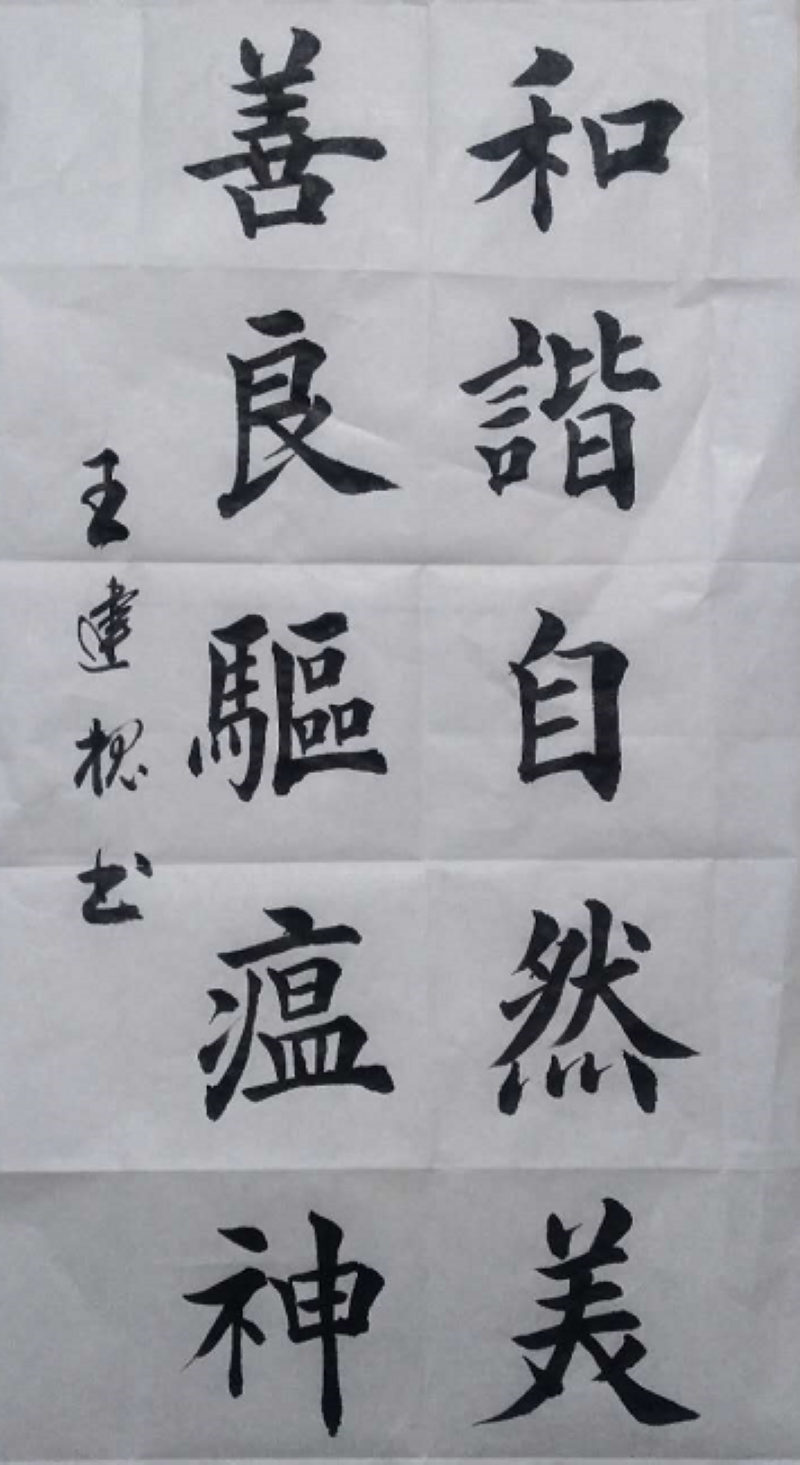 和諧自然美
善良驅瘟神
王建槐书